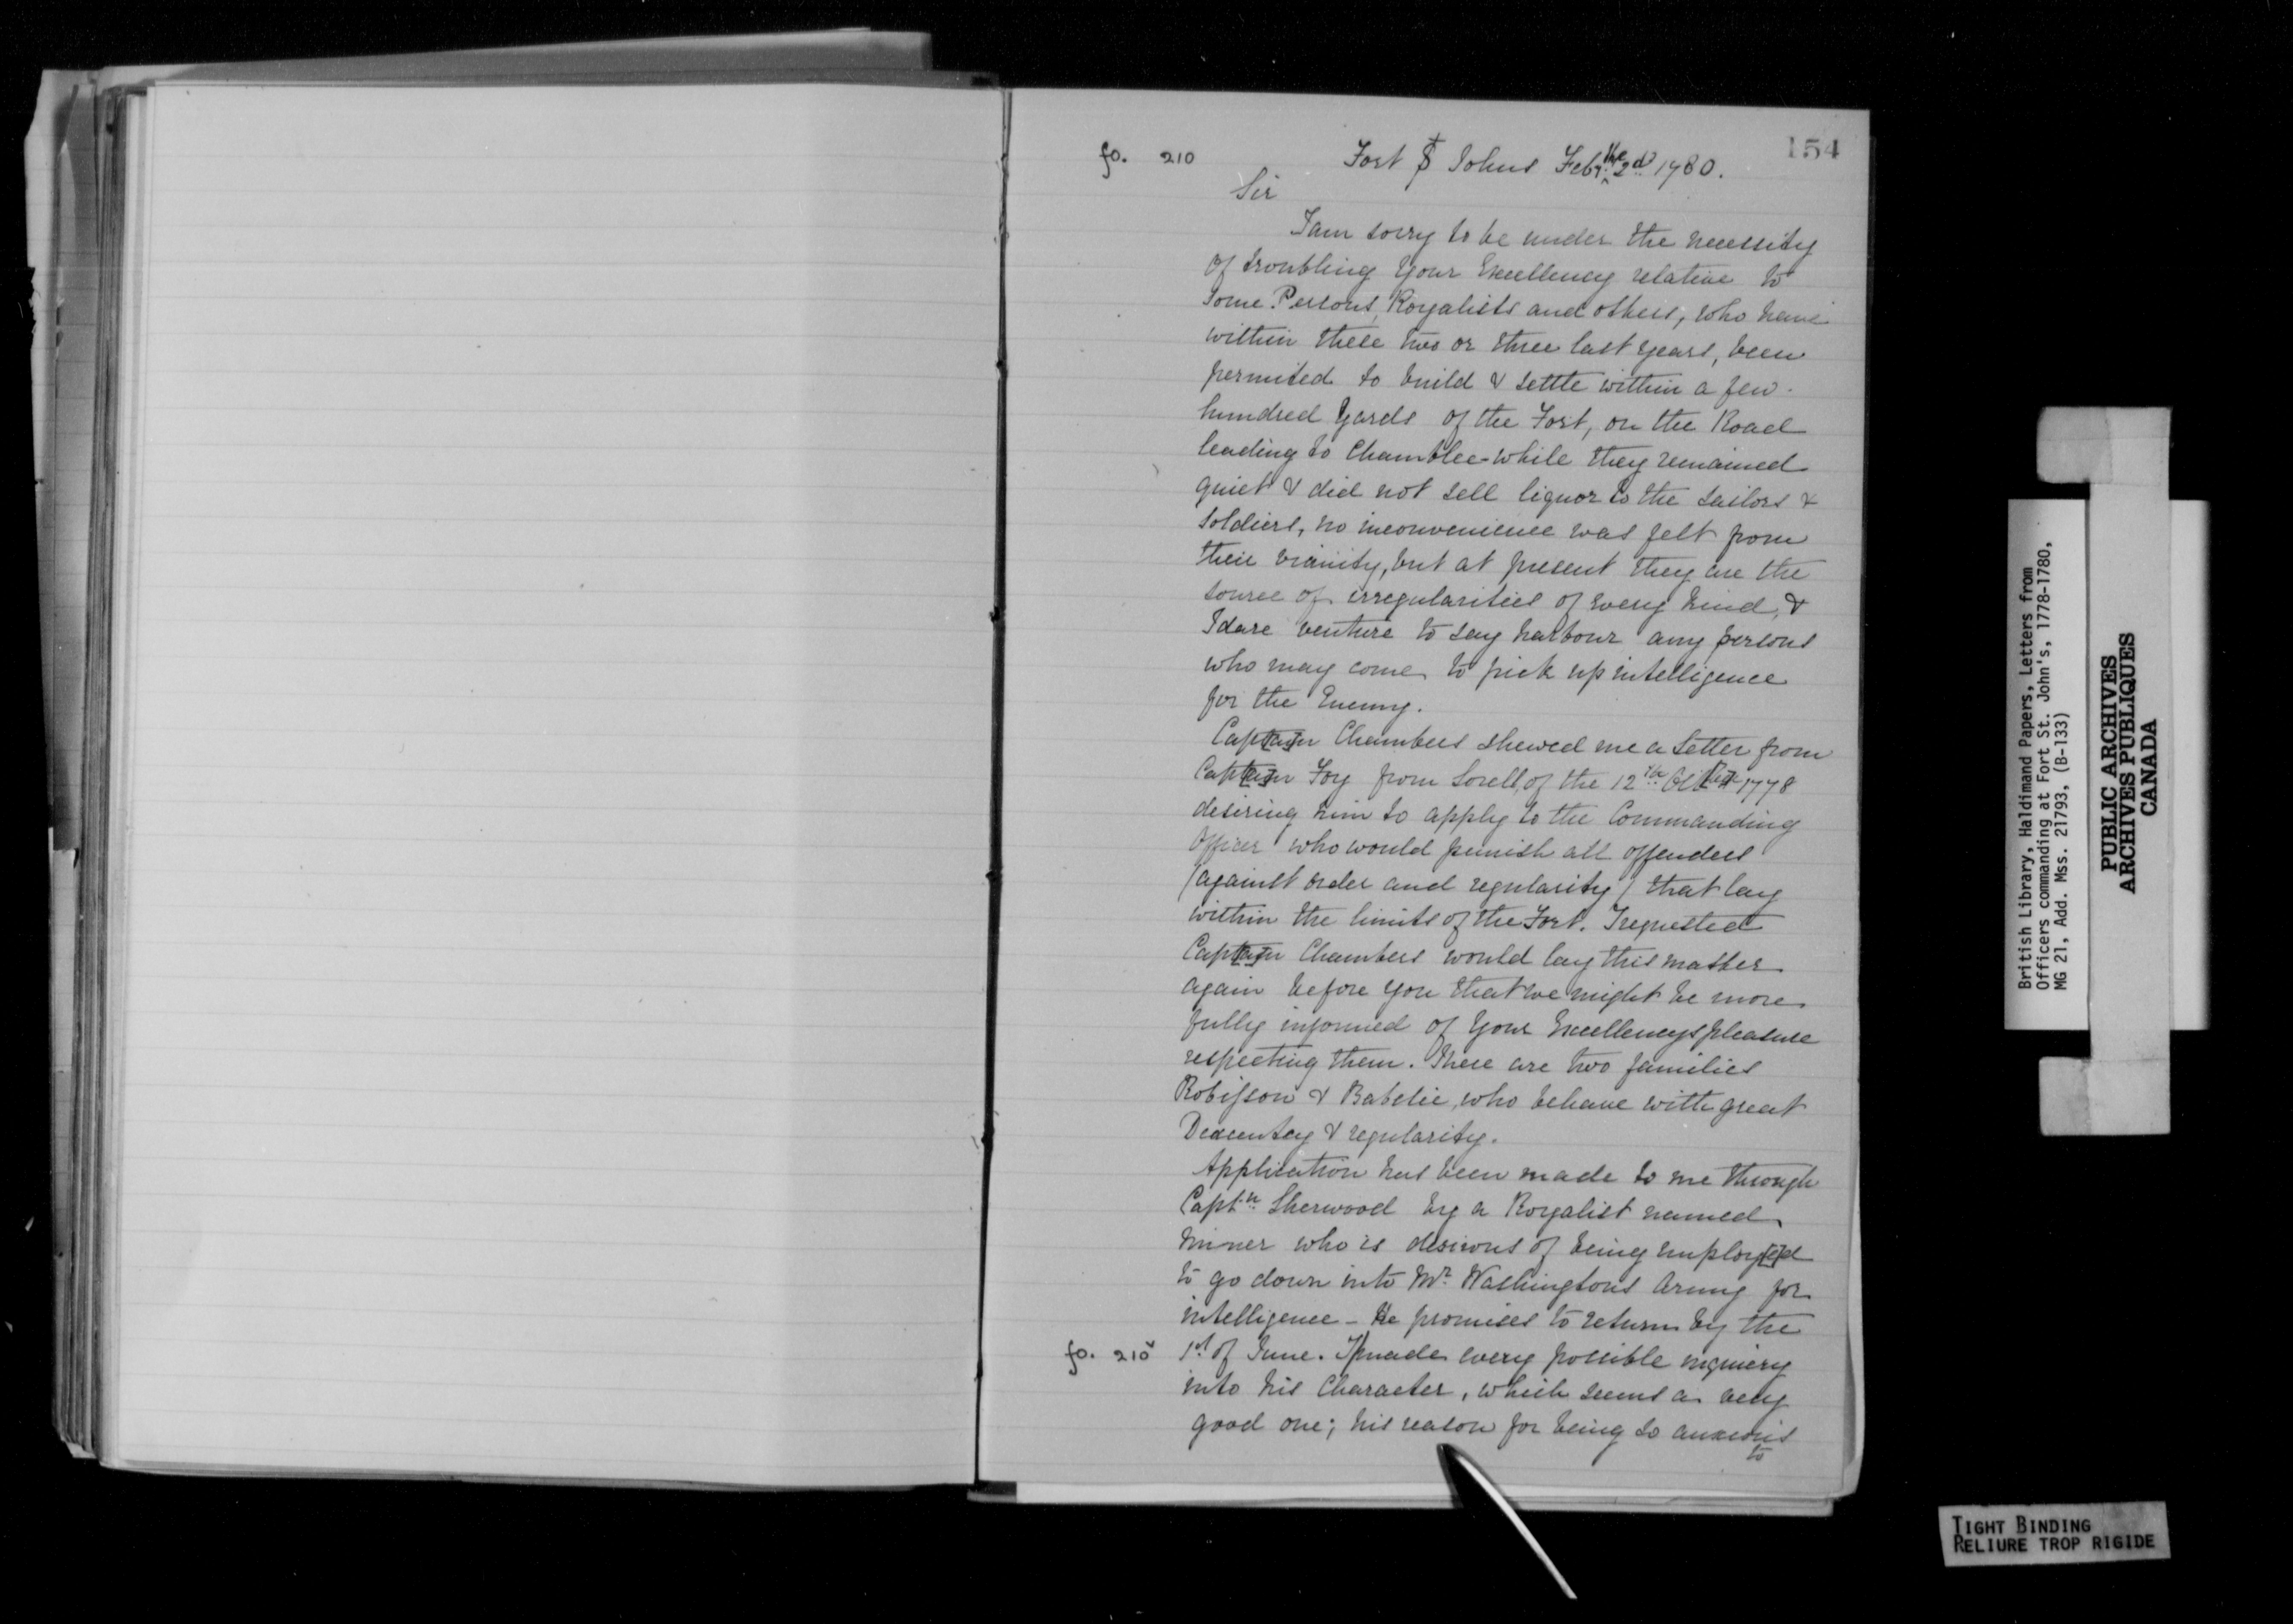 154
fo. 210 Fort St Johns Feby the 2d 1780.
Sir
I am sorry to be under the necessity
of troubling Your Excellency relative to
some Persons, Royalists and others, who have
within these two or three last years, been
permited to build & settle within a few
hundred Yards of the Fort, on the Road
leading to Chamblee - while they remained
quiet & did not sell liquor to the sailors &
soldiers, no inconvenience was felt from
their vicinity, but at present they are the
source of irregularities of every kind, &
I dare venture to say harbour any persons
who may come to pick up intelligence
for the Enemy.
Capt[ai]n Chambers shewed me a Letter from
Capt[ai]n Foy from Sorell, of the 12th Octber 1778
desiring him to apply to the Commanding
Officer who would punish all offenders
(against order and regularity) that lay
within the limits of the Fort. I requested
Capt[ai]n Chambers would lay this matter
again before you that we might be more
fully informed of Your Excellencys pleasure
respecting them. There are two families
Robisson & Babelie, who behave with great
Deacentcy & regularity.
Application has been made to me through
Captn Sherwood by a Royalist named
Minner who is desirous of being employ[e]d
to go down into Mr. Washingtons Army for
intelligence - He promises to return by the
fo. 210v 1st of June. I made every possible inquiery
into his Character, which seems a very
good one; his reason for being so anxious
to
British Library, Haldimand Papers, Letters from
Officers commanding at Fort St. John's, 1778-1780,
MG 21, Add. Mss. 21793, (B-133)
PUBLIC ARCHIVES
ARCHIVES PUBLIQUES
CANADA
TIGHT BINDING
RELIURE TROP RIGIDE